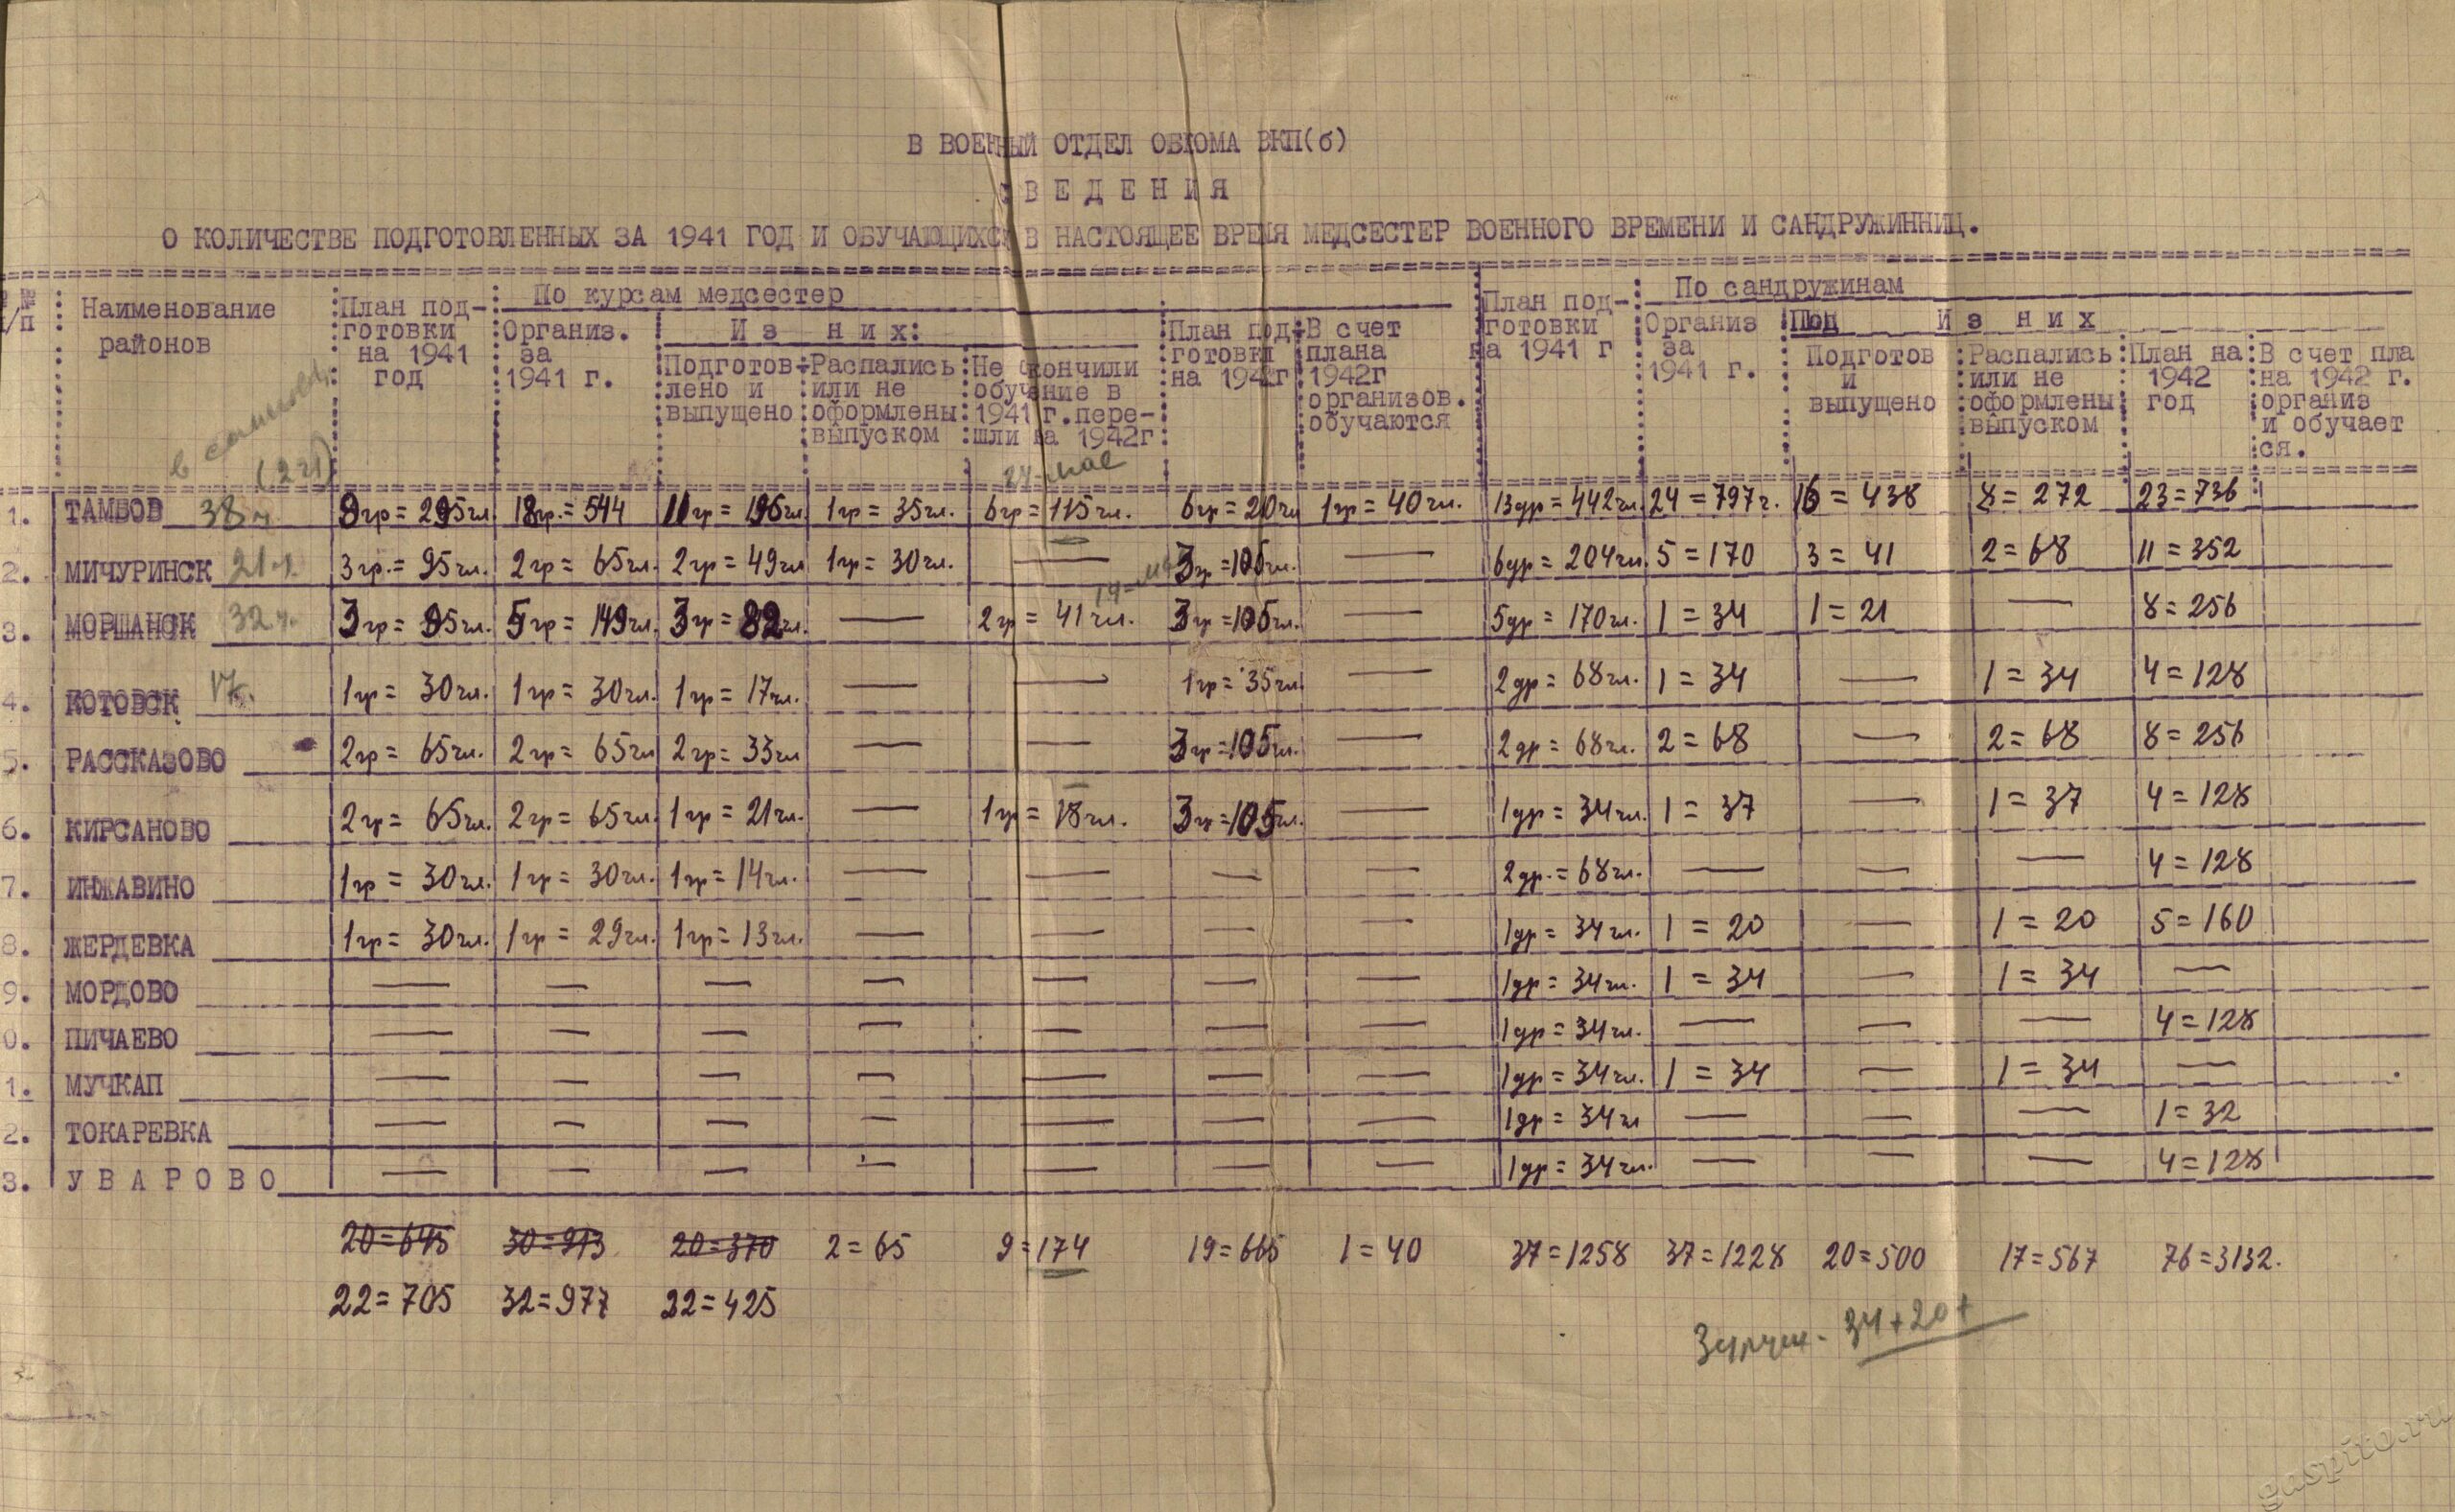 В ВОЕННЫЙ ОТДЕЛ ОБКОМА ВКП(б)
СВЕДЕНИЯ
О КОЛИЧЕСТВЕ ПОДГОТОВЛЕННЫХ ЗА 1941 ГОД И ОБУЧАЮЩИХСЯ В НАСТОЯЩЕЕ ВРЕМЯ МЕДСЕСТЕР ВОЕННОГО ВРЕМЕНИ И САНДРУЖИННИЦ.
№№ п/п
Наименование районов
План подготовки на 1941 год
По курсам медсестер
Организ. за 1941 г.
Из них:
Подготовлено и выпущено
Распались или не оформлены выпуском
Не окончили обучение в 1941 г. перешли на 1942г
План подготовки на 1942г
В счет плана 1942г организов. обучаются
План подготовки на 1941 г
По сандружинам
Организ за 1941 г.
Под Из них
Подготов и выпущено
Распались или не оформлены выпуском
План на 1942 год
В счет плана 1942 г. организ и обучается.
(2 гр)
1. ТАМБОВ 38 ч. 9гр = 295чл 18гр. = 544 11гр = 196чл 1гр = 35чл. 6гр = 115чл. 6гр = 210чл 1гр = 40чл. 13др = 442чл. 24 = 797ч. 16 = 438 8 = 272 23 = 736
2. МИЧУРИНСК 21 ч. 3гр. = 95чл. 2гр = 65чл. 2гр = 49чл 1гр = 30чл. — 3гр = 105чл. — 6др = 204чл. 5 = 170 3 = 41 2 = 68 11 = 352
3. МОРШАНСК 32 ч. 3гр = 95чл. 5гр = 149чл. 3гр = 82чл. — 2гр = 41чл. 3гр = 105чл. — 5др = 170чл. 1 = 34 1 = 21 — 8 = 256
4. КОТОВСК 17. 1гр = 30чл. 1гр = 30чл. 1гр = 17чл. — — 1гр = 35чл. — 2др = 68чл. 1 = 34 — 1 = 34 4 = 128
5. РАССКАЗОВО 2гр = 65чл. 2гр = 65чл 2гр = 33чл — — 3гр = 105чл. — 2др = 68чл. 2 = 68 — 2 = 68 8 = 256
6. КИРСАНОВО 2гр = 65чл. 2гр = 65чл. 1гр = 21чл. — 1гр = 18чл. 3гр = 105чл. — 1др = 34чл. 1 = 37 — 1 = 37 4 = 128
7. ИНЖАВИНО 1гр = 30чл. 1гр = 30чл. 1гр = 14чл. — — — — 2др. = 68чл. — — — 4 = 128
8. ЖЕРДЕВКА 1гр = 30чл. 1гр = 29чл. 1гр = 13чл. — — — — 1др = 34чл. 1 = 20 — 1 = 20 5 = 160
9. МОРДОВО — — — — — — — 1др = 34чл. 1 = 34 — 1 = 34 —
0. ПИЧАЕВО — — — — — — — 1др = 34чл. — — — 4 = 128
1. МУЧКАП — — — — — — — 1др = 34чл. 1 = 34 — 1 = 34 —
2. ТОКАРЕВКА — — — — — — — 1др = 34чл — — — 1 = 32
3. УВАРОВО — — — — — — — 1др = 34чл. — — — 4 = 128
20=645 30=913 20=370 2 = 65 9 = 174 19 = 665 1 = 40 37 = 1258 37 = 1228 20 = 500 17 = 567 76 = 3132.
22 = 705 32 = 977 22 = 425
34+20+
gaspito.ru